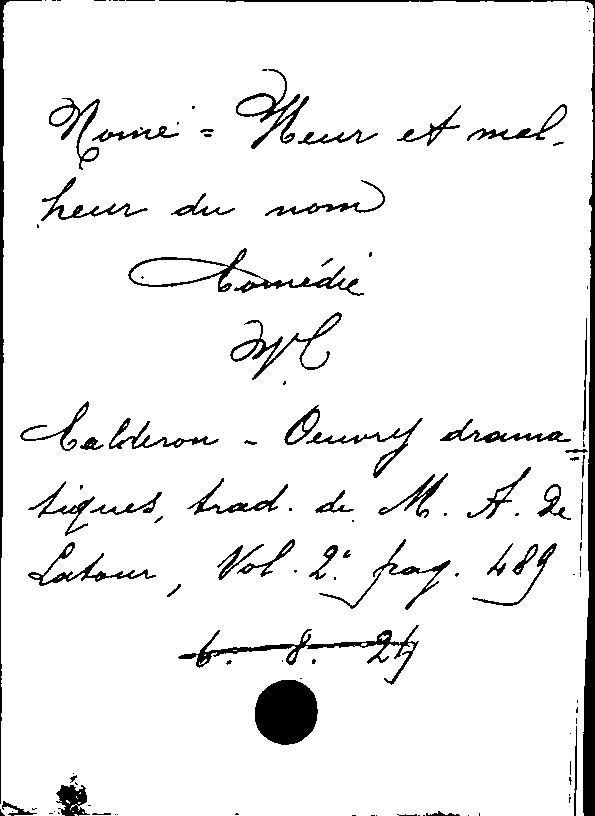 Nome = Heur et mal-
heur du nom
Comédie
Calderon - Oeuvres drama-
tiques, trad. de M. A. De
Latour, Vol. 2º pag. 489
6. 8. 24